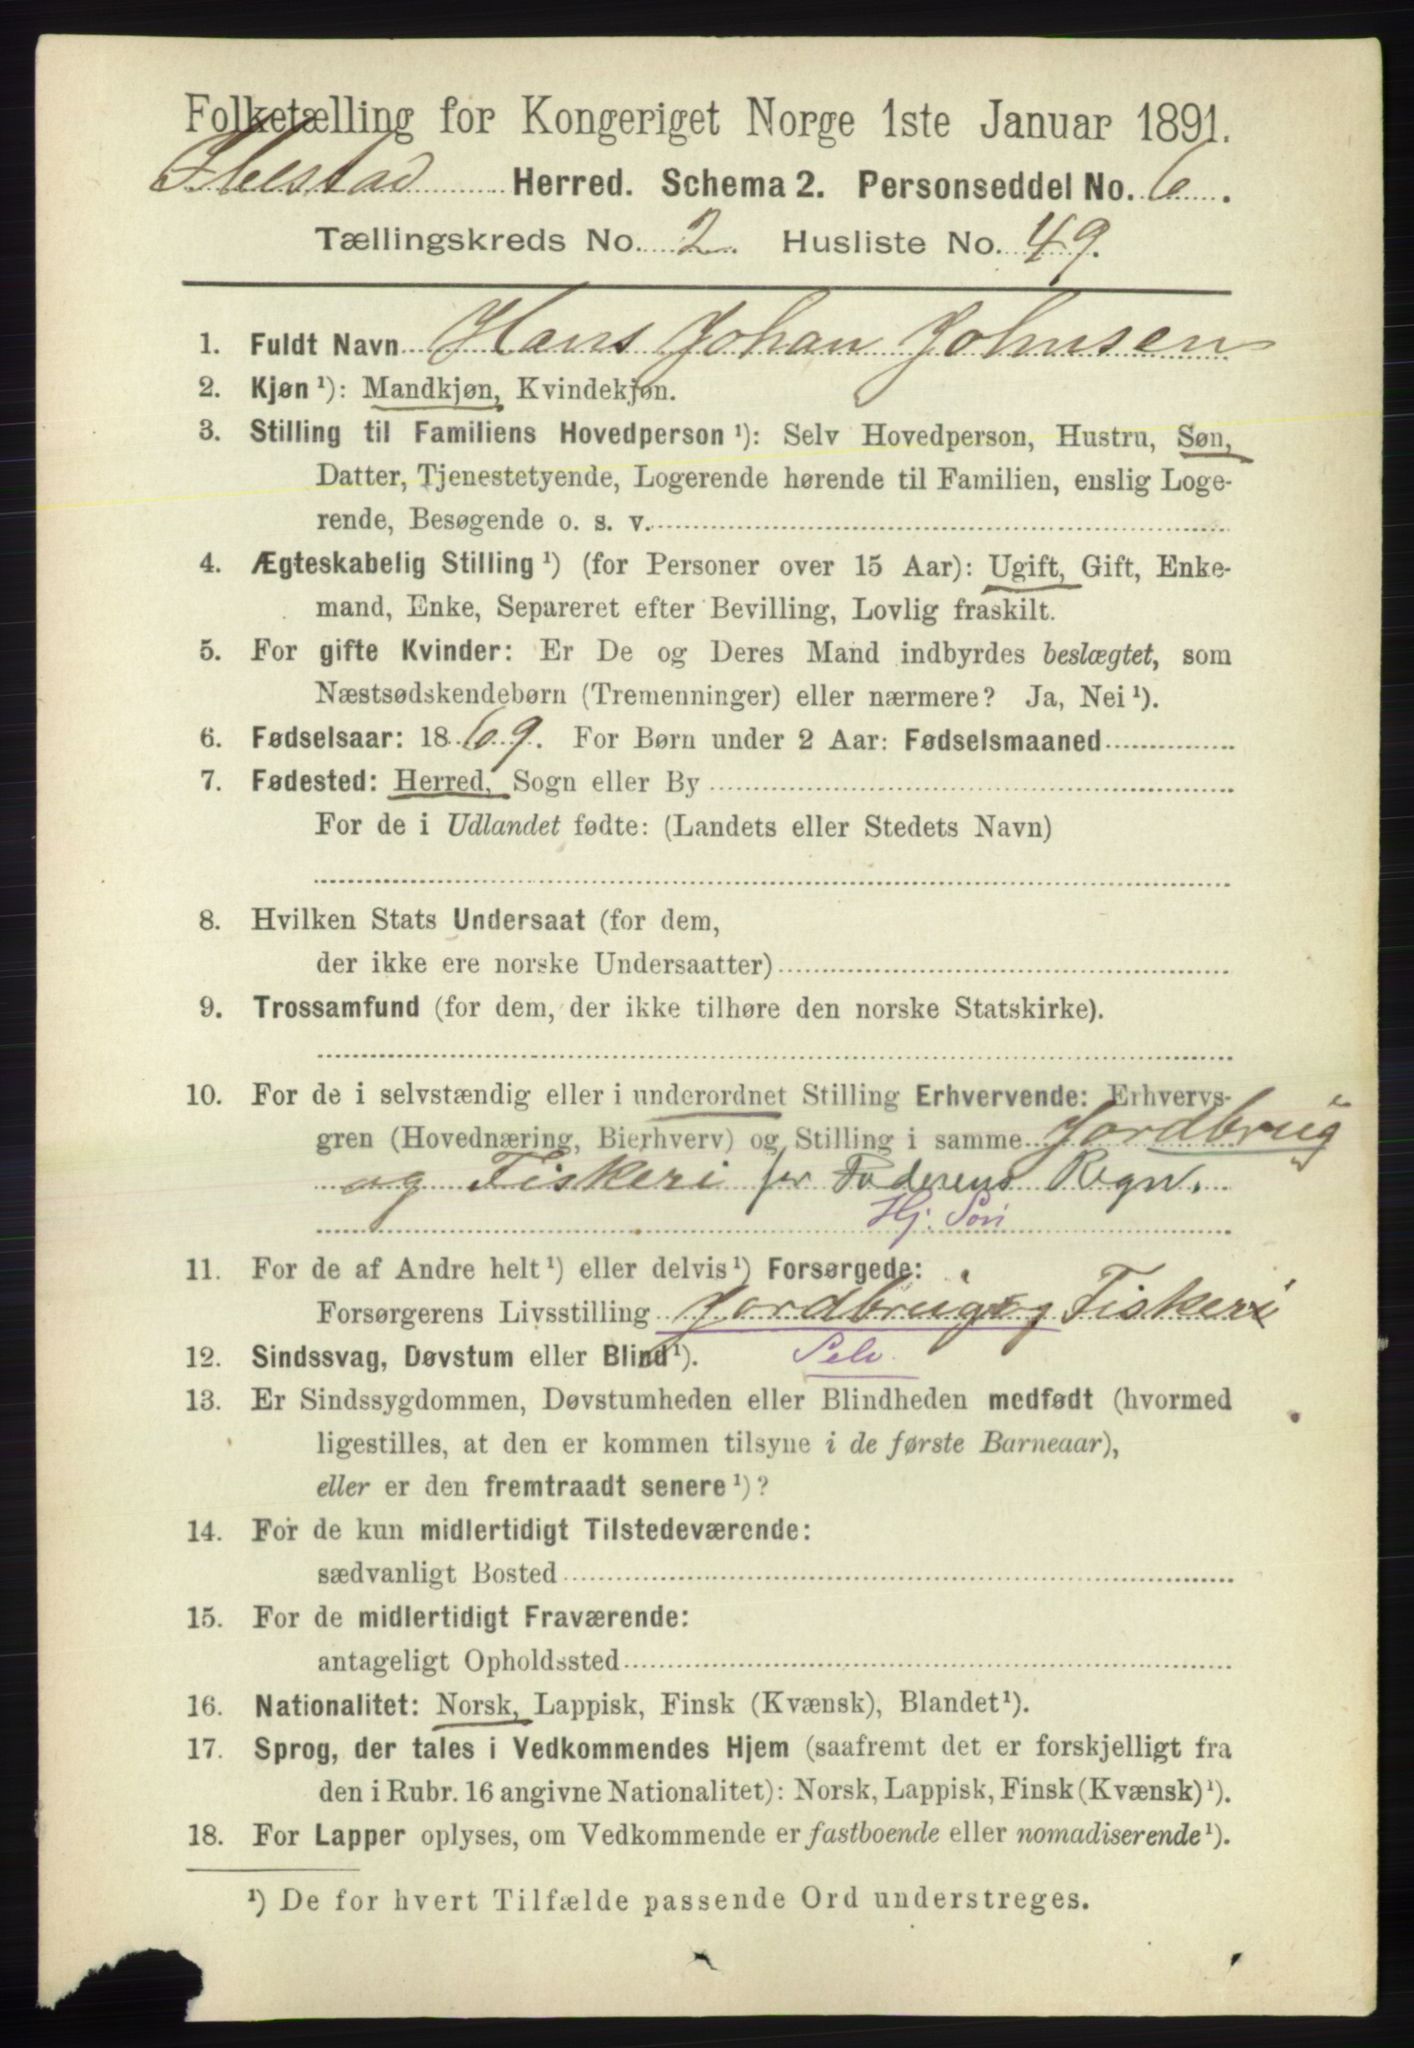 Folketælling for Kongeriget Norge 1ste Januar 1891.
Ibestad Herred. Schema 2. Personseddel No. 6.
Tællingskreds No. 2. Husliste No. 49.
1. Fuldt Navn Hans Johan Johnsen
2. Kjøn ¹): Mandkjøn, Kvindekjøn.
3. Stilling til Familiens Hovedperson ¹): Selv Hovedperson, Hustru, Søn,
Datter, Tjenestetyende, Logerende hørende til Familien, enslig Loge-
rende, Besøgende o. s. v.
4. Ægteskabelig Stilling ¹) (for Personer over 15 Aar): Ugift, Gift, Enke-
mand, Enke, Separeret efter Bevilling, Lovlig fraskilt.
5. For gifte Kvinder: Er De og Deres Mand indbyrdes beslægtet, som
Næstsødskendebørn (Tremenninger) eller nærmere? Ja, Nei ¹).
6. Fødselsaar: 1869. For Børn under 2 Aar: Fødselsmaaned
7. Fødested: Herred, Sogn eller By
For de i Udlandet fødte: (Landets eller Stedets Navn)
8. Hvilken Stats Undersaat (for dem,
der ikke ere norske Undersaatter)
9. Trossamfund (for dem, der ikke tilhøre den norske Statskirke).
10. For de i selvstændig eller i underordnet Stilling Erhvervende: Erhvervs-
gren (Hovednæring, Bierhverv) og Stilling i samme Jordbrug
og Fiskeri for Faderens Regn.
Hj. Søn
11. For de af Andre helt ¹) eller delvis ¹) Forsørgede:
Forsørgerens Livsstilling Jordbrug og Fiskeri
12. Sindssvag, Døvstum eller Blind ¹). Selv
13. Er Sindssygdommen, Døvstumheden eller Blindheden medfødt (hvormed
ligestilles, at den er kommen tilsyne i de første Barneaar),
eller er den fremtraadt senere ¹)?
14. For de kun midlertidigt Tilstedeværende:
sædvanligt Bosted
15. For de midlertidigt Fraværende:
antageligt Opholdssted
16. Nationalitet: Norsk, Lappisk, Finsk (Kvænsk), Blandet ¹).
17. Sprog, der tales i Vedkommendes Hjem (saafremt det er forskjelligt fra
den i Rubr. 16 angivne Nationalitet): Norsk, Lappisk, Finsk (Kvænsk) ¹).
18. For Lapper oplyses, om Vedkommende er fastboende eller nomadiserende ¹).
¹) De for hvert Tilfælde passende Ord understreges.